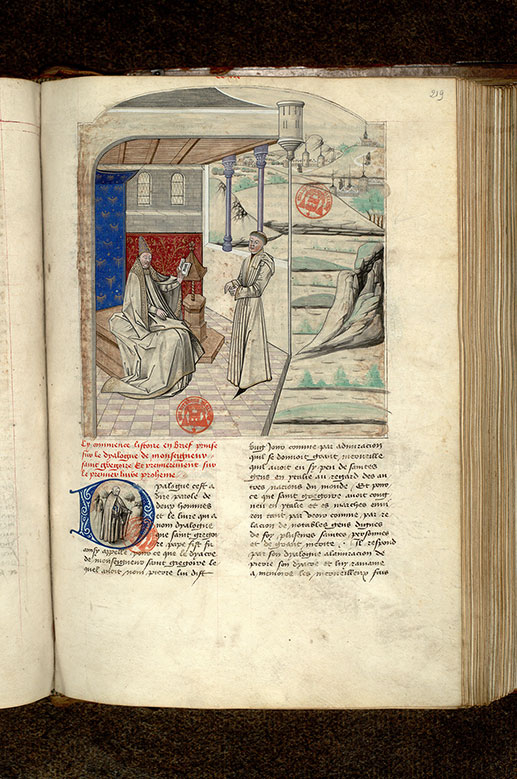 219
Cy commence listoire en brief prinse
sur le dyalogue de monseigneur
saint gregoire Et premierement sur
le premier livre proheme
Dyalogue cest a
dire parole de
deux hommes
et le livre qui a
nom dyalogue
que saint grego
re pape fist fu
ainsy appelle pour ce que le dyacre
de monseigneur saint gregoire le
quel avoit nom pierre lui dist
ung jour comme par admiracion
quil se donnoit grant merveille
quil avoit eu sy peu de saintes
gens en ytalie au regard des au
tres nations du monde Et pour
ce que saint gregoire avoit cong
neu en ytalie et es marches envi
ron tant par veoir comme par re
lacion de notables gens dignes
de foy plusieurs saintes personnes
et de grant merite il respond
par son dyalogue a lamiracion de
pierre son dyacre et luy ramaine
a memoire les merveilleux fais